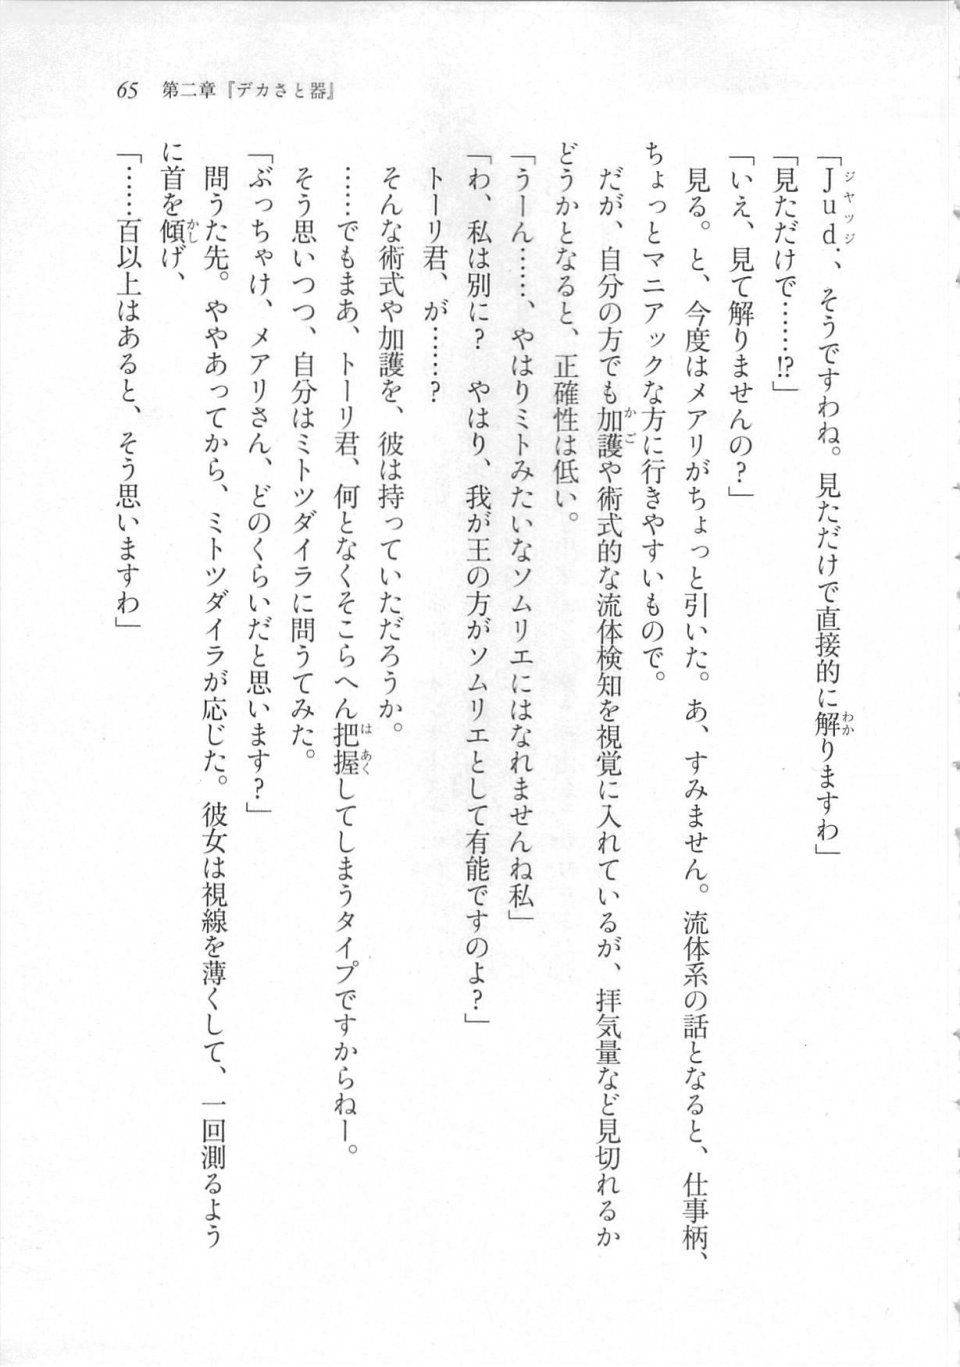 65　第二章『デカさと器』
「Jud.、そうですわね。見ただけで直接的に解りますわ」
「見ただけで……!?」
「いえ、見て解りませんの？」
見る。と、今度はメアリがちょっと引いた。あ、すみません。流体系の話となると、仕事柄、
ちょっとマニアックな方に行きやすいもので。
だが、自分の方でも加護や術式的な流体検知を視覚に入れているが、拝気量など見切れるか
どうかとなると、正確性は低い。
「うーん……、やはりミトみたいなソムリエにはなれませんね私」
「わ、私は別に？　やはり、我が王の方がソムリエとして有能ですのよ？」
トーリ君、が……？
そんな術式や加護を、彼は持っていただろうか。
……でもまあ、トーリ君、何となくそこらへん把握してしまうタイプですからねー。
そう思いつつ、自分はミトツダイラに問うてみた。
「ぶっちゃけ、メアリさん、どのくらいだと思います？」
問うた先。ややあってから、ミトツダイラが応じた。彼女は視線を薄くして、一回測るよう
に首を傾げ、
「……百以上はあると、そう思いますわ」